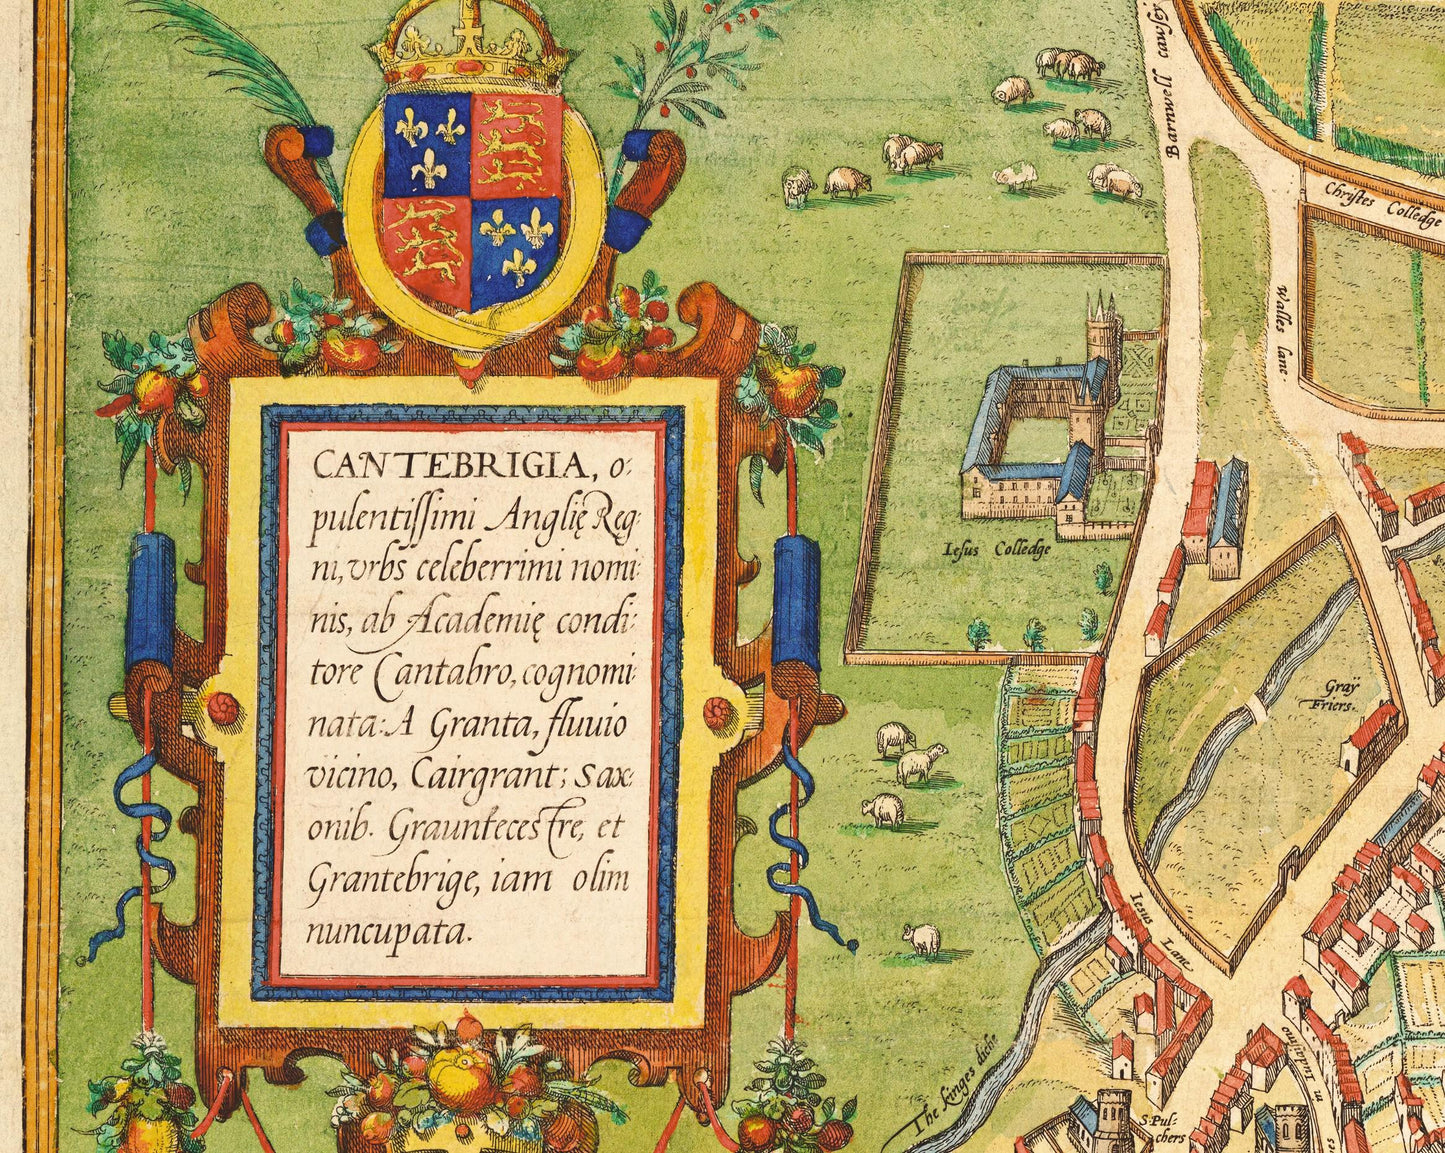 CANTEBRIGIA, o:
pulentissimi Anglię Reg:
ni, vrbs celeberrimi nomi:
nis, ab Academię condi:
tore Cantabro, cognomi:
nata: A Granta, fluuio
vicino, Cairgrant; Sax:
onib. Grauntecestre, et
Grantebrige, iam olim
nuncupata.
Barnwell cawsey
Christes Colledge
Walles lane.
Iesus Colledge
Graÿ
Friers.
Iesus Lane
The kinges dich
S. Pul-
chers